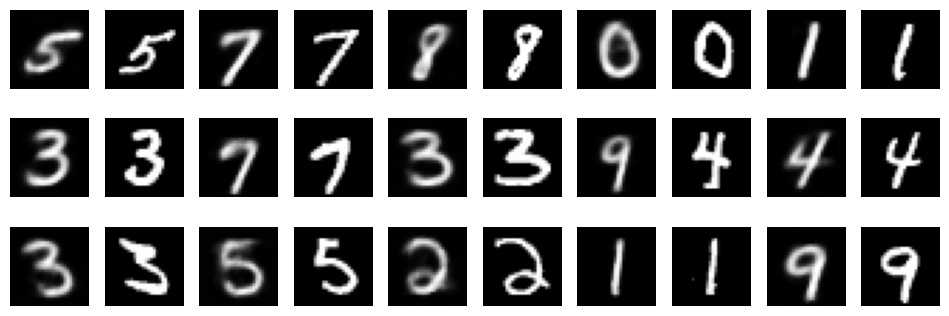 5 5 7 7 8 8 0 0 1 1
3 3 7 7 3 3 9 4 4 4
3 3 5 5 2 2 1 1 9 9